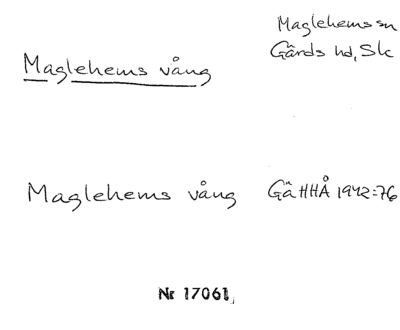 Maglehems sn
Gärds hd, Sk
Maglehems vång
Maglehems vång GäHHÅ 1942:76
Nr 17061